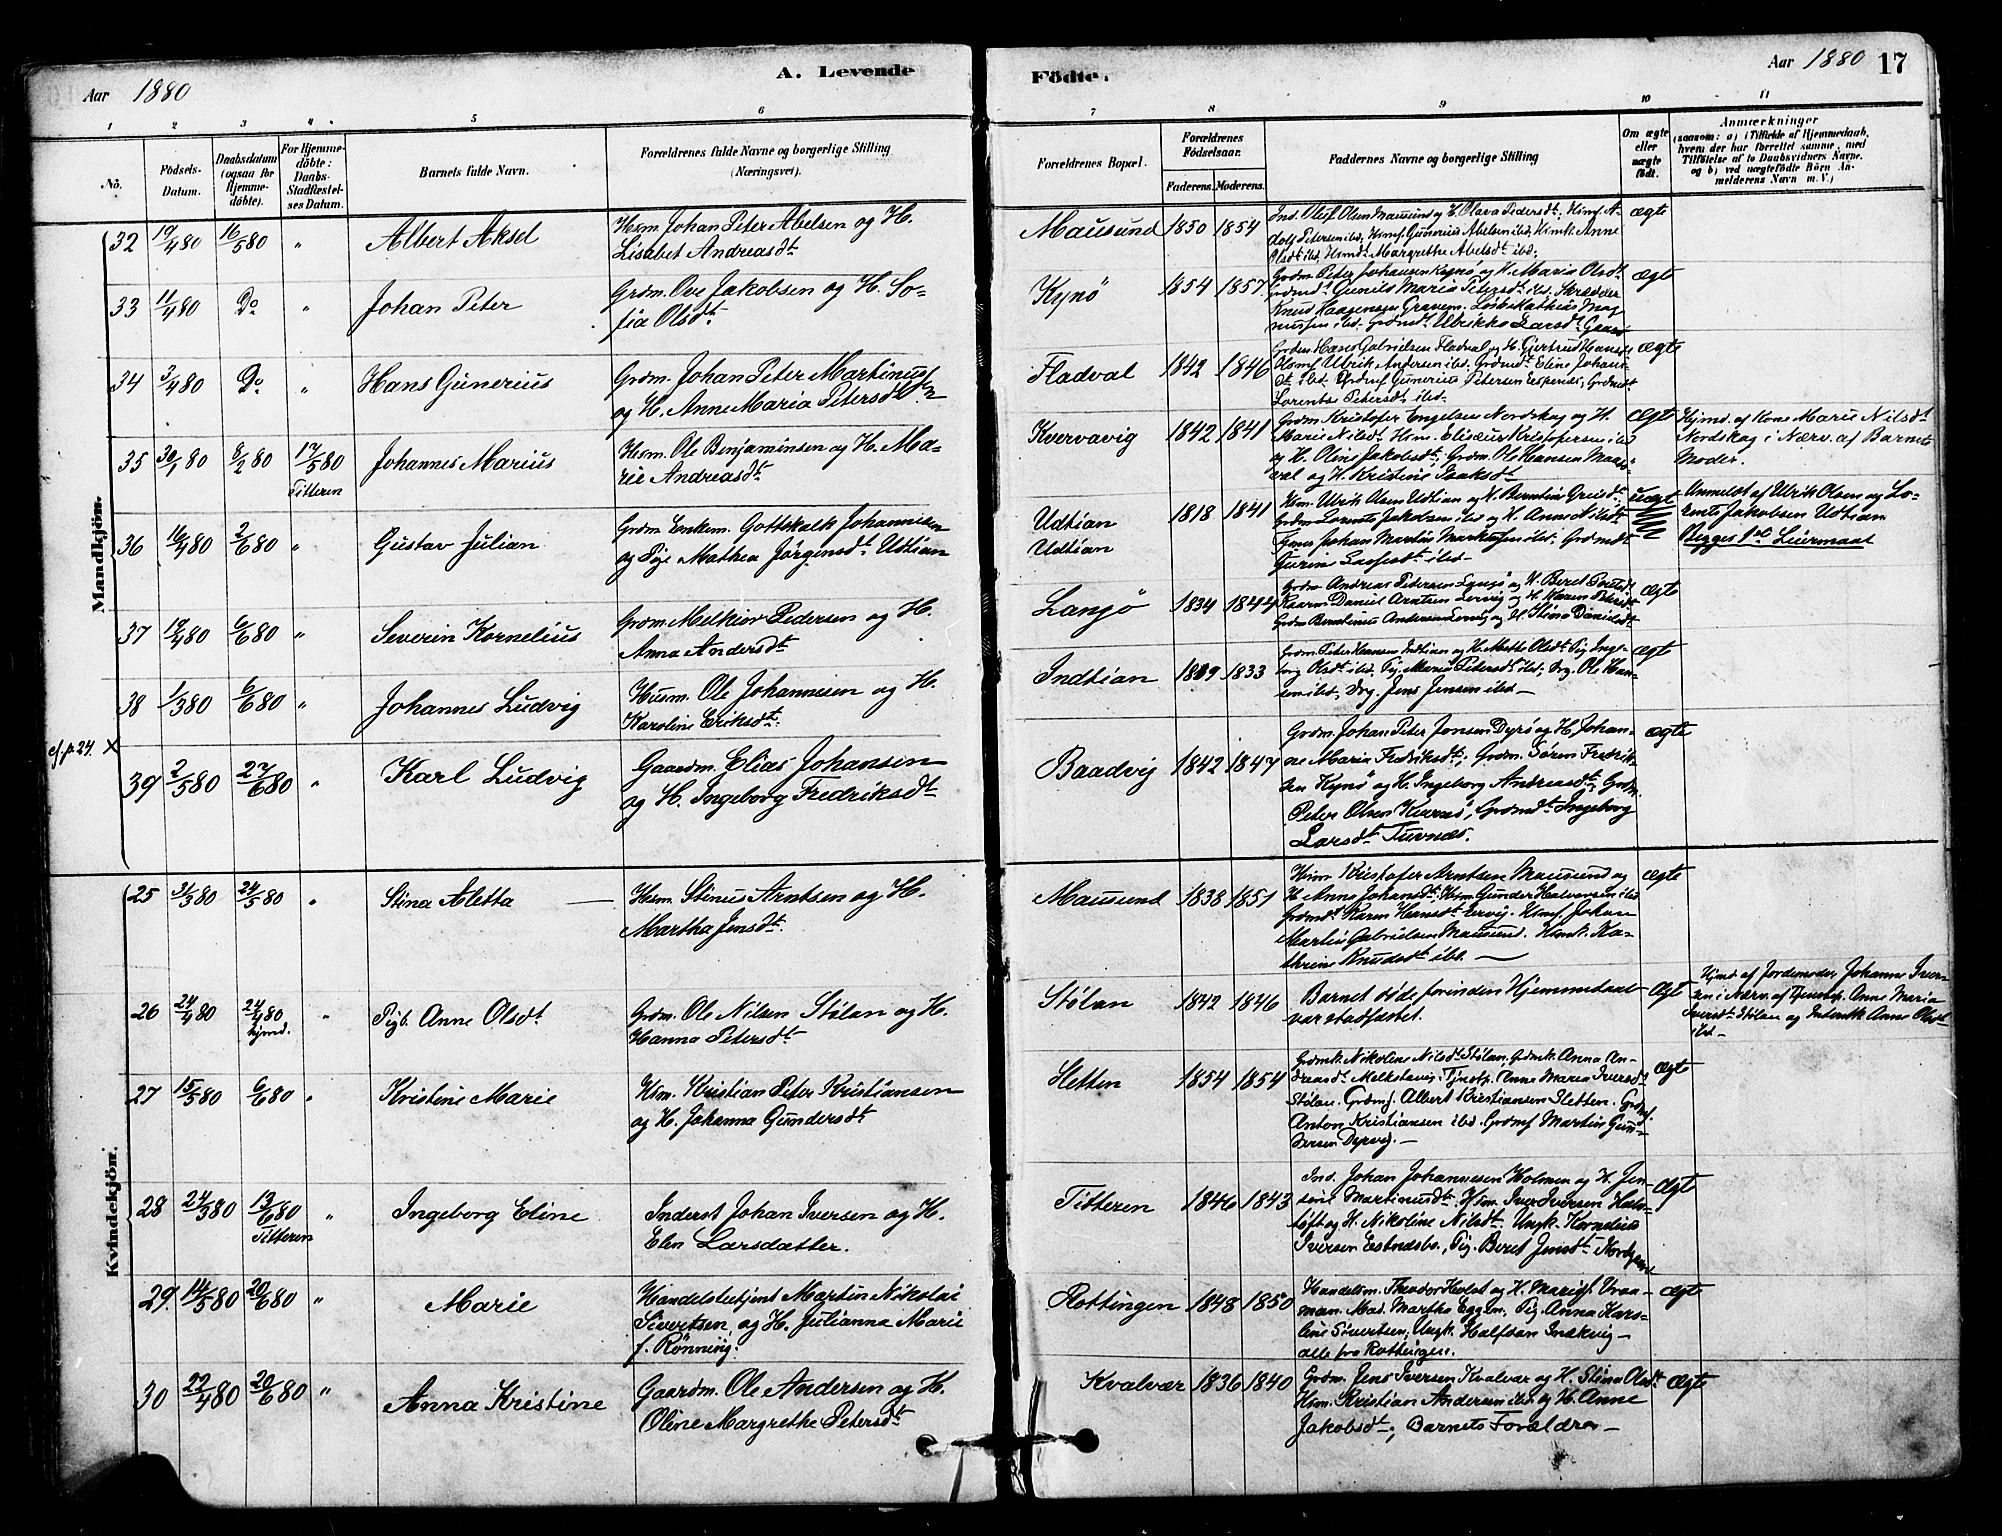 Aar 1880
A. Levende
Födte.
Aar 1880 17
1 2 3 4 5 6 7 8 9 10 11
No.
Födsels-
Datum.
Daabsdatum
(ogsaa for
Hjemme-
döbte).
For Hjemme-
döbte:
Daabs-
Stadfæstel-
ses Datum.
Barnets fulde Navn.
Forældrenes fulde Navne og borgerlige Stilling
(Næringsvei).
Forældrenes Bopæl.
Forældrenes
Födselsaar.
Faderens. Moderens.
Faddernes Navne og borgerlige Stilling
Om ægte
eller
uægte
født.
Anmærkninger
(saasom: a) i Tilfælde af Hjemmedaab,
hvem der har forrettet samme, med
Tilföielse af to Daabsvidners Navne.
og b) ved uægtefödte Börn An-
melderens Navn m. V.)
Mandkjön.
32 19/4 80 16/5 80 " Albert Aksel
Hsm. Johan Peter Abelsen og H.
Lisabet Andreasdt
Mausund 1850 1854
Ind. Oluf Olsen Mausund og H. Olava Pedersdt; Hsmf. A-
dolf Petersen ibd; Hsmf. Gunerius Abelsen ibd, Hsmk. Anne
Olsdt ibd, Hsmdt Margrethe Abelsdt ibd;
ægte
33 11/4 80 Do " Johan Peter
Grdm. Ove Jakobsen og H. So-
fia Olsdt
Kynø 1854 1857
Grdm. Peter Johansen Kynø og H. Maria Olsdt
Grdmdt Gunild Maria Petersdt ibd. Skrædder
Knud Haagensen Gravem. Løsk. Mathias Mag-
nussen ibd. Grdmdt Ulrikke Larsdt
ægte
34 3/4 80 Do " Hans Gunerius
Grdm. Johan Peter Martinus
og H. Anne Maria Petersdt
Fladval 1842 1846
Grdm Hans Gabrielsen Fladval og H. Gjertrud Hansdt
Hsmf Ulrik Andersen ibd. Grdmdt Eline Johan-
dt ibd. Grdmf. Gunerius Petersen Espenes, Grdmdt
Lorentse Petersdt ibd.
ægte
35 30/1 80 8/2 80 17/5 80
Titteren
Johannes Marius
Hsm. Ole Benjaminsen og H. Ma-
rie Andreasdt
Kvervavig 1842 1841
Grdm. Kristofer Engelsen Nordskag og H.
Marie Nilsdt. Hsm. Elisæus Kristofersen ibd
og H. Oline Jakobsdt; Grdm. Ole Hansen Maas-
val og H. Kristine Isaksdt
ægte
Hjmd. af Kone Marie Nilsdt
Nordskag i Nærv. af Barnets
Moder.
36 16/4 80 2/6 80 " Gustav Julian
Grdm Enkem. Gottskalk Johannesen
og Pige Mathea Jørgensdt Udtian
Udtian
Udtian
1818 1841
Hsm. Ulrik Olsen Udtian og H. Berntine
Grdm Lorents Jakobsen ibd og H. Anne Nilsdt
Johan Martin Markussen ibd. Grdmdt
Gurine ibd.
uægt
Anmeldt af Ulrik Olsen og Lo-
rents Jakobsen Udtian
Begges 1ste Leiermaal
37 19/4 80 6/6 80 " Severin Kornelius
Grdm Melkior Pedersen og H.
Anna Andersdt
Langø 1834 1844
Grdm Andreas Pedersen Langø og H. Beret
Kaarm. Daniel Arntsen Lervig og H. Karen Petersdt
Grdm Berntinus Andersen Lervig og H. Stina Danielsdt
ægte
38 1/3 80 6/6 80 " Johannes Ludvig
Husm. Ole Johannesen og H.
Karoline Eriksdt.
Indtian 1819 1833
Grdm. Peter Hansen Indtian og H. Mette Olsdt Pig Inge-
borg Olsdt ibd. Pig. Maria Petersdt ibd; Drg. Ole Han-
sen ibd; Drg. Jens Jensen ibd -
ægte
cf. p. 24. X
39 2/5 80 27/6 80 " Karl Ludvig
Gaardm. Elias Johansen
og H. Ingeborg Fredriksdt
Baadvig 1842 1847
Grdm. Johan Peter Jonsen Dyrø og H. Johan-
ne Maria Fredriksdt; Grdm. Søren Fredrik-
sen Kynø og H. Ingeborg Andreasdt, Grdm.
Peter Olsen Kværnø, Grdmdt Ingeborg
Larsdt Tuvnæs.
ægte
Kvindekjön.
25 31/3 80 24/5 80 " Stina Aletta
Hsm. Stinus Arntsen og H.
Martha Jensdt.
Mausund 1838 1851
Hsm Kristofer Arntsen Mausund og
H. Anne Johansdt, Hsm. Gunder Halvorsen ibd
Grdmdt Karen Hansdt Lervig. Hsmf. Johan
Martin Gabrielsen Mausund. Hsmk. Ka-
thrine Knudsdt ibd. -
ægte
26 24/4 80 24/4 80
hjmd.
" Pigb. Anne Olsdt
Grdm. Ole Nilsen Stølan og H.
Hanna Petersdt
Stølan 1842 1846
Barnet døde forinden Hjemmedaab
var stadfæstet.
Ægt
Hjmd af Jordemoder Johanna Iver-
sen i Nærv. af Tjenstep. Anne Maria
Iversdt Stølan og Inderstk Anne Olsdt
ibd -
27 15/5 80 6/6 80 " Kristine Marie
Hsm. Kristian Peter Kristiansen
og H. Johanna Gundersdt
Sletten 1854 1854
Grdmk. Nikoline Nilsdt Stølan. Grdmk. Anna An-
dreasdt Melkstavig. Tjnstp. Anne Maria Iversdt
Stølan. Grdmf. Albert Kristiansen Sletten. Grdmf.
Anton Kristiansen ibd. Grdmf Martin Gun-
dersen Dyrvig. -
ægte
28 24/3 80 13/6 80
Titteren
" Ingeborg Eline
Inderst Johan Iversen og H.
Elen Larsdatter.
Titteren 1846 1843
Ind. Johan Johannesen Holmen og H. Jen-
sine Martinusdt. Hsm. Iver Iversen
og H. Nikoline Nilsdt. Ungk. Kornelius
Iversen Estensbo., Pig. Beret Jensdt
ægte
29 14/5 80 20/6 80 " Marie
Handelsbetjent Martin Nikolai
Sivertsen og H. Julianna Marie
f. Rønning.
Rottingen 1848 1850
Handelsm. Theodor Holst og H. Marie f.
Mad. Martha Eggen, Pig. Anna Kars-
tine Sivertsen, Ungk. Halfdan
alle fra Rottingen.
ægte
30 22/4 80 20/6 80 " Anna Kristine
Gaardm. Ole Andersen og H.
Oline Margrethe Petersdt
Kvalvær 1836 1840
Grdm. Jens Iversen Kvalvær og H. Stina Olsdt
Hsm. Kristian Andersen ibd og H. Anne
Jakobsdt; Barnets Forældre -
ægte